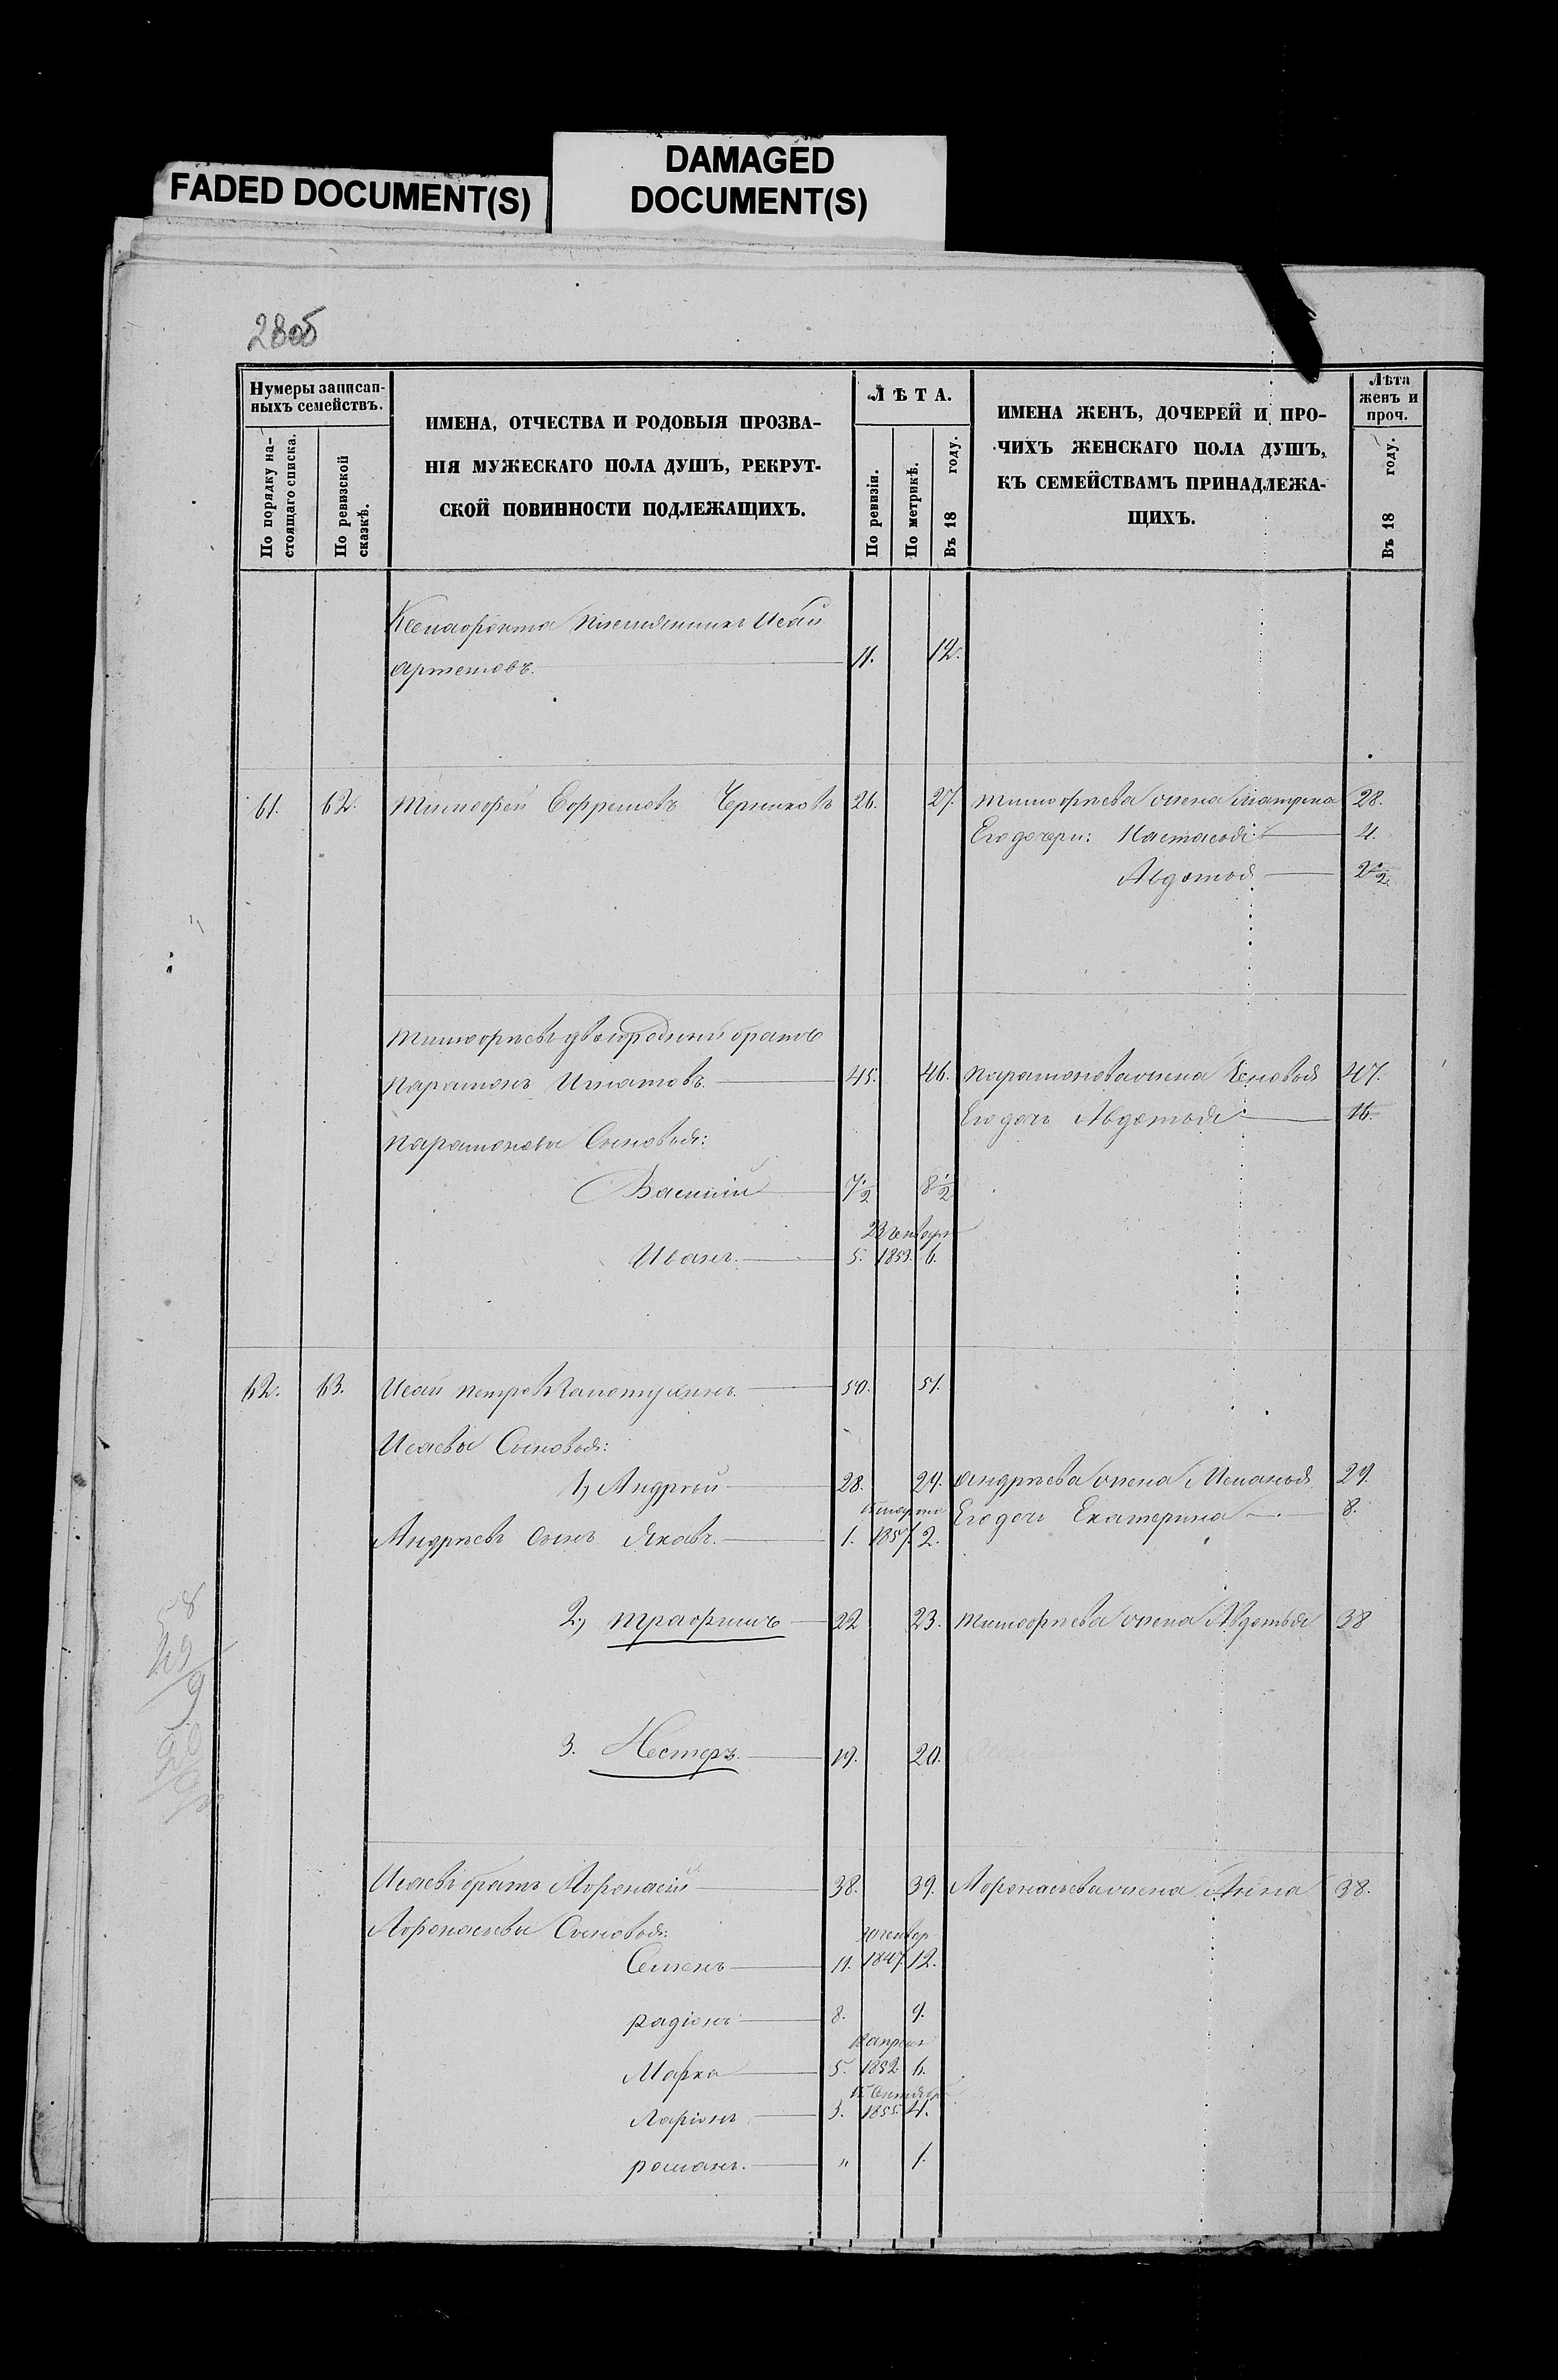 FADED DOCUMENT(S)
DAMAGED
DOCUMENT(S)
28об
Нумеры записан-
ныхъ семействъ.
По порядку на-
стоящаго списка.
По ревизской
сказкѣ.
ИМЕНА, ОТЧЕСТВА И РОДОВЫЯ ПРОЗВА-
НІЯ МУЖЕСКАГО ПОЛА ДУШЪ, РЕКРУТ-
СКОЙ ПОВИННОСТИ ПОДЛЕЖАЩИХЪ.
ЛѢТА.
По ревизіи.
По метрикѣ.
Въ 18 году.
ИМЕНА ЖЕНЪ, ДОЧЕРЕЙ И ПРО-
ЧИХЪ ЖЕНСКАГО ПОЛА ДУШЪ,
КЪ СЕМЕЙСТВАМЪ ПРИНАДЛЕЖА-
ЩИХЪ.
Лѣта
женъ и
проч.
Въ 18 году.
Исай
Артемовъ. 11. 12.
61. 62. Тимофей Ефремовъ 26. 27. Тимофѣева жена Матрена 28.
Его дочери: Настасья 4.
Авдотья 2 1/2
Тимофѣевъ двоюродный братъ
Парамонъ Игнатовъ. 45. 46. Парамонова жена 47.
Его дочь Авдотья 16.
Парамоновы Сыновья:
Василий 7 1/2 8 1/2
23 генваря
Иванъ. 5. 1853. 6.
62. 63. Исай Петровъ 50. 51.
Исаевы Сыновья:
1, Андрей 28. 29. Андрѣева жена Меланья 29.
марта
Его дочь Екатерина 8.
Андрѣевъ сынъ Яковъ. 1. 1857. 2.
2, Трафимъ 22 23. Тимофѣева жена Авдотья 38
3. Нестеръ. 19. 20.
Исаевъ братъ Афонасій 38. 39. Афонасьева жена Анна 38.
Афонасьевы Сыновья:
Семенъ 11. 1847. 12.
Радіонъ 8. 9.
апреля
Марка 5. 1852. 6.
15 Сентября
Ларіонъ 3. 1855. 4.
Романъ. " 1.